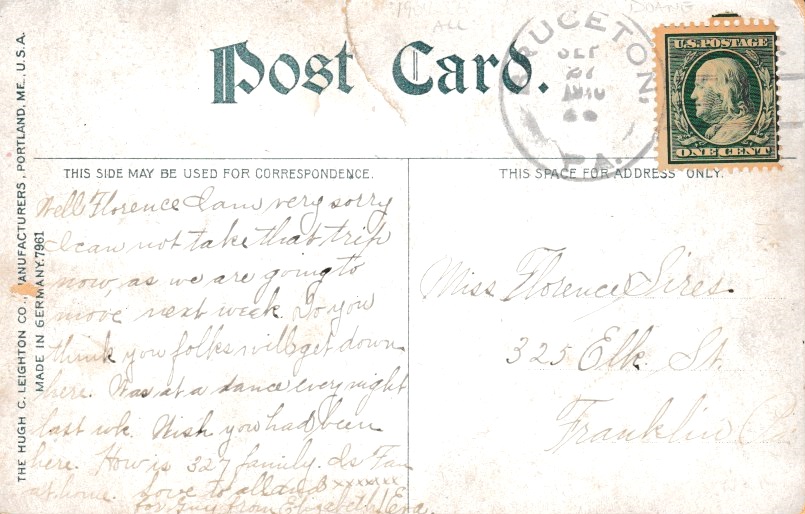 Post Card.
BRUCETON,
SEP
27
1910
PA.
U.S. POSTAGE
ONE CENT
DOANE
ALL
THIS SIDE MAY BE USED FOR CORRESPONDENCE.
THIS SPACE FOR ADDRESS ONLY.
THE HUGH C. LEIGHTON CO., MANUFACTURERS, PORTLAND, ME., U.S.A.
MADE IN GERMANY. 7961
Well Florence I am very sorry
I can not take that trip
now, as we are going to
move next week. Do you
think you folks will get down
here. Was at a dance every night
last wk. Wish you had been
here. How is 327 family. Is Fan
at home. Love to all and xxxxxxx
for Guy from Elizabeth. Eva
Miss Florence Sires.
325 Elk St.
Franklin Pa